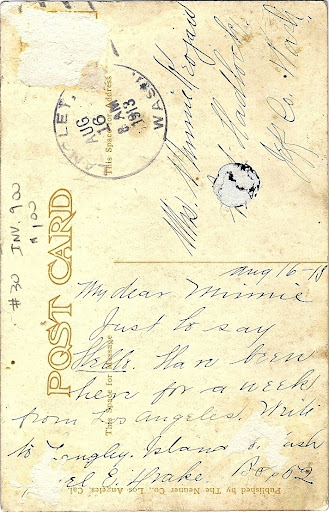 LANGLEY,
AUG
16
8 AM
1913
WASH.
Mrs. Minnie
Co. Wash.
This Space for Address
POST CARD
This Space for Message
#30 INV. 900
$1.00
Aug 16 - 13
My dear Minnie
Just to say
Hello. Have been
here for a week
from Los Angeles. Write
to Langley. Island Co. Wash
Drake. Box 52
Published by The Neuner Co., Los Angeles, Cal.